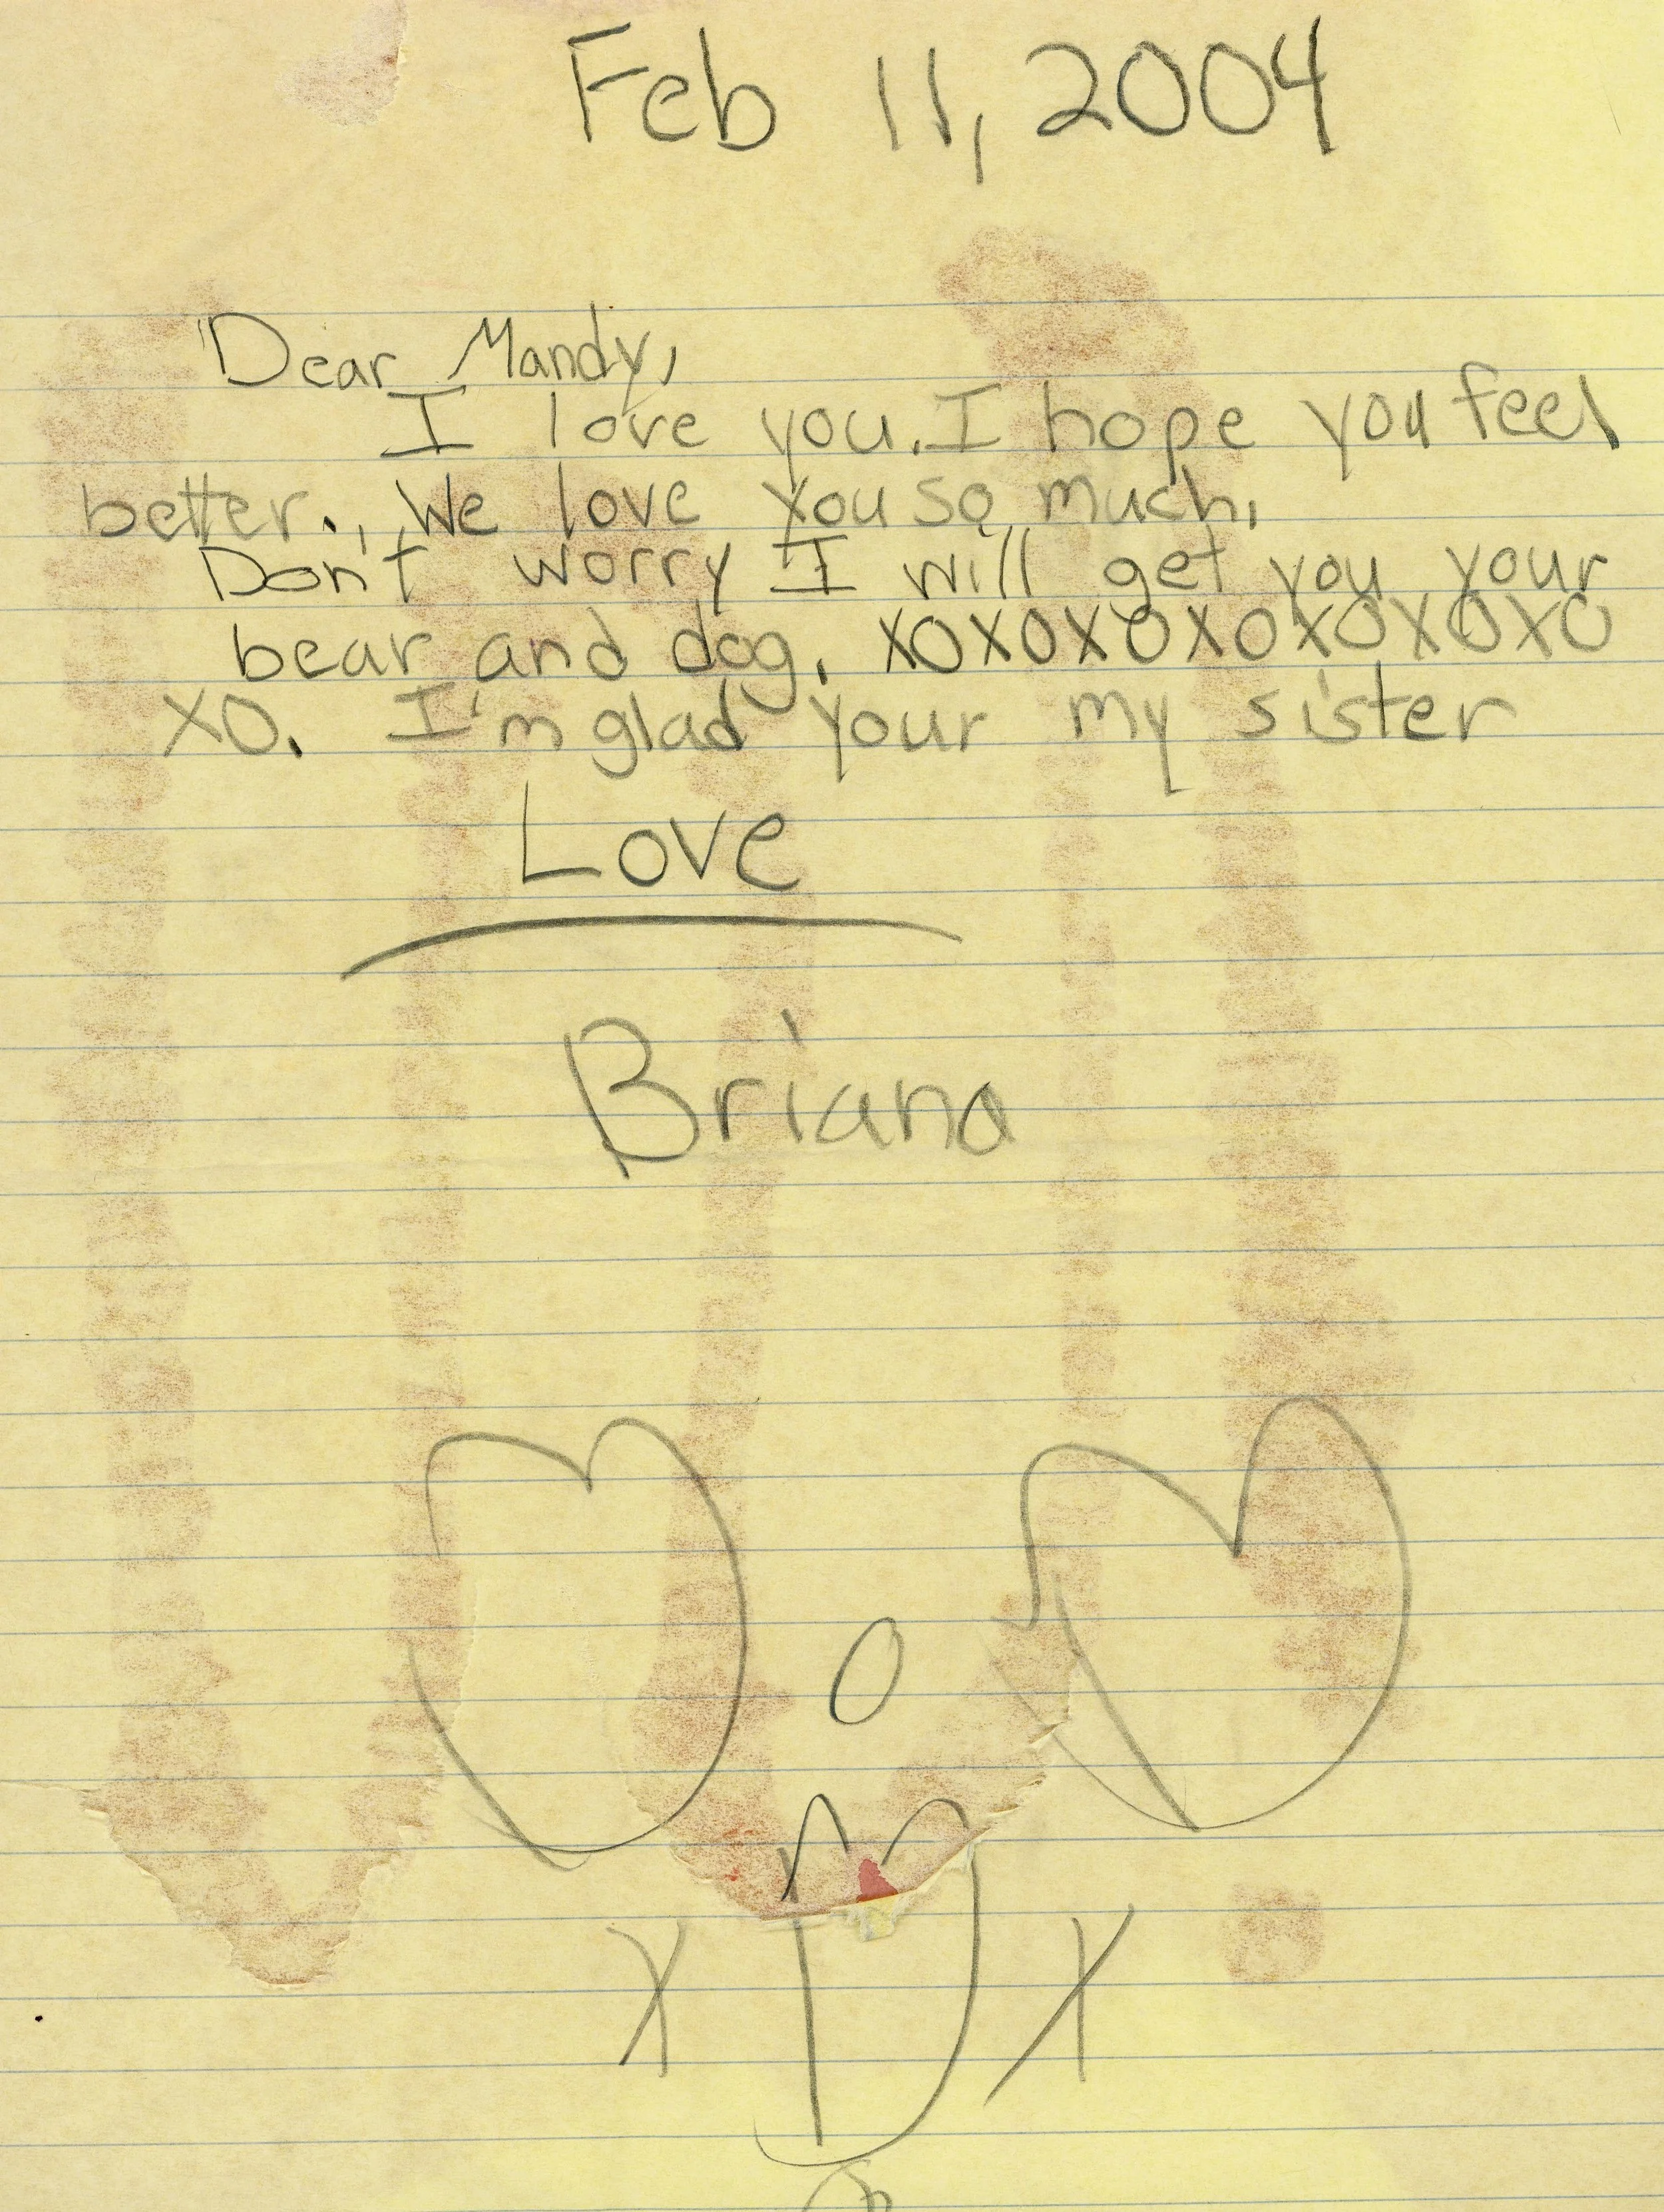 Feb 11, 2004
Dear Mandy,
I love you. I hope you feel
better. We love you so much.
Don't worry I will get you your
bear and dog. XOXOXOXOXOXOXO
XO. I'm glad your my sister
Love
Briana
O
X X